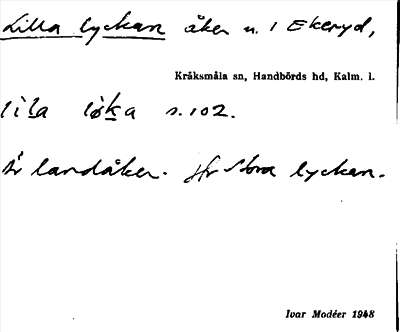 Lilla lyckan åker n. 1 Ekeryd,
Kråksmåla sn, Handbörds hd, Kalm. l.
lila løka s. 102.
Är landåker. Jfr Stora lyckan.
Ivar Modéer 1948